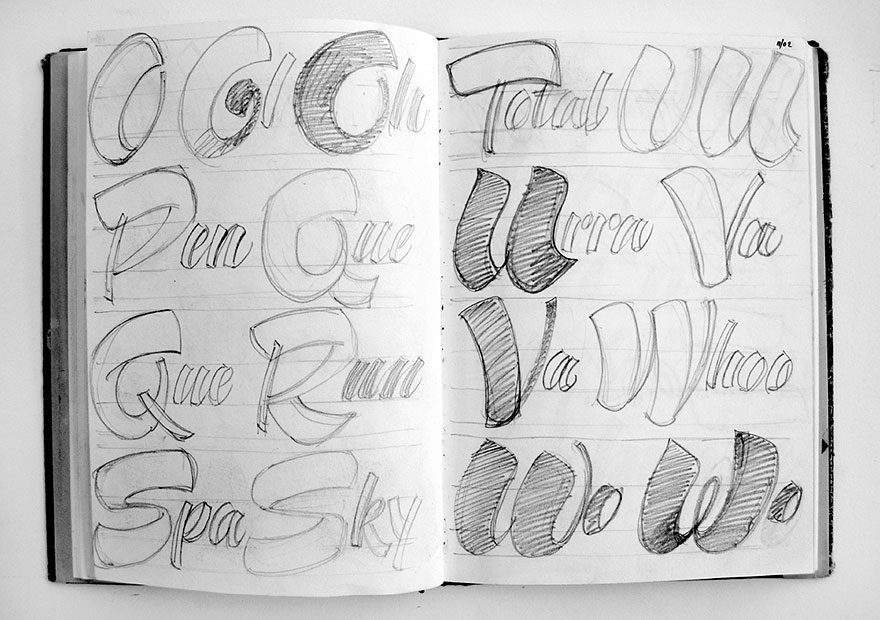 O Gl Oh
Pen Que
Que Runn
Spa Sky
11/02
Total U U
Urrra Va
Va Whoo
Wo Wo